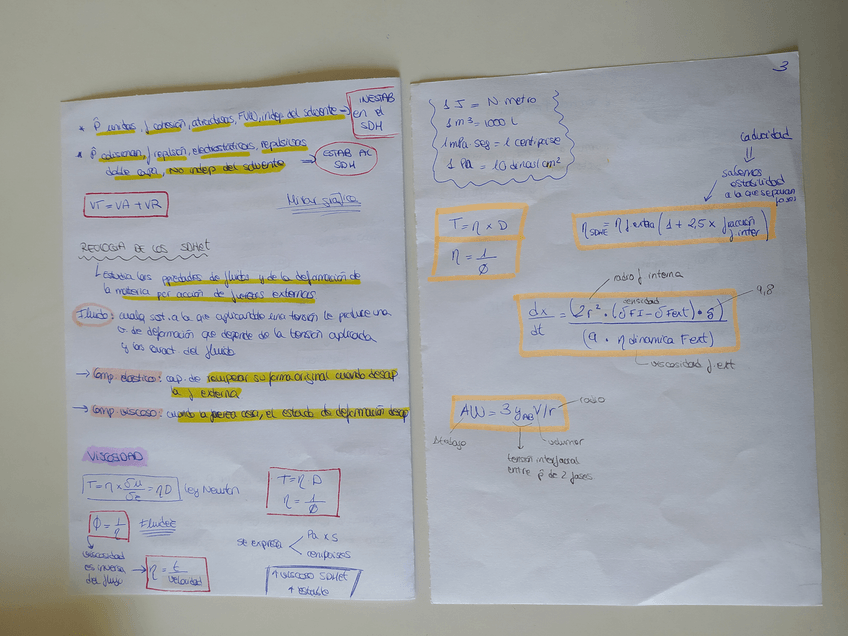 * p̂ unidas, f cohesión, atractivas, FVW, indep. del solvente → INESTAB en el SDH
* p̂ adicionan, f repulsión, electrostáticas, repulsivas
doble capa, No indep del solvente → ESTAB AL SDH
VT = VA + VR
Mirar gráfica
REOLOGÍA DE LOS SDHet
↳ estudia las propiedades de fluidos y de la deformación de
la materia por acción de fuerzas externas.
Fluido: cualq sist. a la que aplicando una tensión le produce una
v de deformación que depende de la tensión aplicada
y las caract. del fluido
→ Comp. elástico: cap. de recuperar su forma original cuando desap
la f externa
→ Comp. viscoso: cuando la fuerza cesa, el estado de deformación desap
VISCOSIDAD
T = η × = ηD Ley Newton
T = η D
η = 1/Φ
Φ = 1/η Fluidez
viscosidad
es inversa
del flujo
η = t/velocidad
se expresa < Pa × s
centipoises
↑ viscoso SDHet
↑ estable
3
1 J = N metro
1 m³ = 1000 L
1 mPa·seg = 1 centipoise
1 Pa = 10 dinas/cm²
Caducidad
⇓
sabemos
estabilidad
a la que separan
fases
T = η × D
η = 1/Φ
η SDHE = η f. extra (1 + 2,5 × fracción f. inter)
radio f interna
densidad
9,8
dx/dt = (2r² · (δFI − δFext) · g) / (9 · η dinamica Fext)
viscosidad f. ext
ΔW = 3 γAB V/r
radio
Δ trabajo
volumen
tensión interfacial
entre p̂ de 2 fases